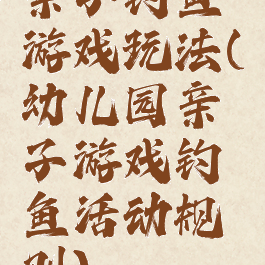 亲子钓鱼
游戏玩法(
幼儿园亲
子游戏钓
鱼活动规
则)